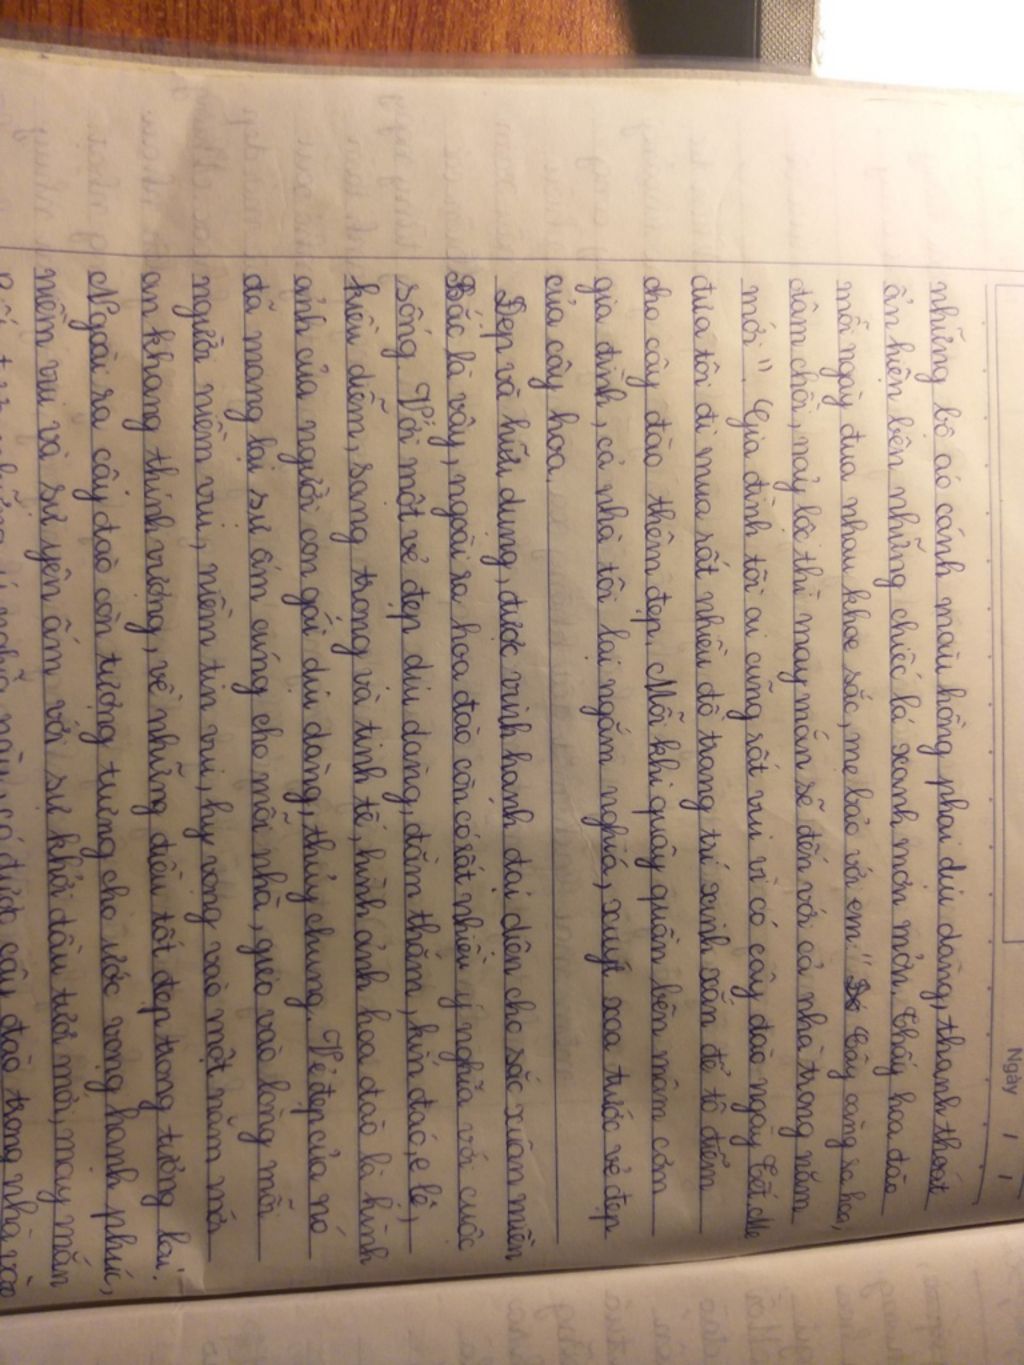 Ngày / /
những bộ áo cánh màu hồng phai dịu dàng, thanh thoát
ẩn hiện bên những chiếc lá xanh mơn mởn. Thấy hoa đào
mỗi ngày đua nhau khoe sắc, mẹ bảo với em " Cây càng ra hoa,
đâm chồi, nảy lộc thì may mắn sẽ đến với cả nhà trong năm
mới". Gia đình tôi ai cũng rất vui vì có cây đào ngày Tết. Mẹ
đưa tôi đi mua rất nhiều đồ trang trí xinh xắn để tô điểm
cho cây đào thêm đẹp. Mỗi khi quây quần bên mâm cơm
gia đình, cả nhà tôi lại ngắm nghía, xuýt xoa trước vẻ đẹp
của cây hoa.
Đẹp và hữu dụng, được vinh hoánh đại diện cho sắc xuân miền
Bắc là vậy, ngoài ra hoa đào còn có rất nhiều ý nghĩa với cuộc
sống. Với một vẻ đẹp dịu dàng, đằm thắm, kín đáo, e lệ,
kiều diễm, sang trọng và tinh tế, hình ảnh hoa đào là hình
ảnh của người con gái dịu dàng, thủy chung. Vẻ đẹp của nó
đã mang lại sự ấm cúng cho mỗi nhà, gieo vào lòng mỗi
người niềm vui, niềm tin vui, hy vọng vào một năm mới
an khang thịnh vượng, về những điều tốt đẹp trong tương lai.
Ngoài ra cây đào còn tượng trưng cho ước vọng hạnh phúc,
niềm vui và sự yên ấm với sự khởi đầu tươi mới, may mắn
ý nghĩa này, có được cây đào trong nhà vào